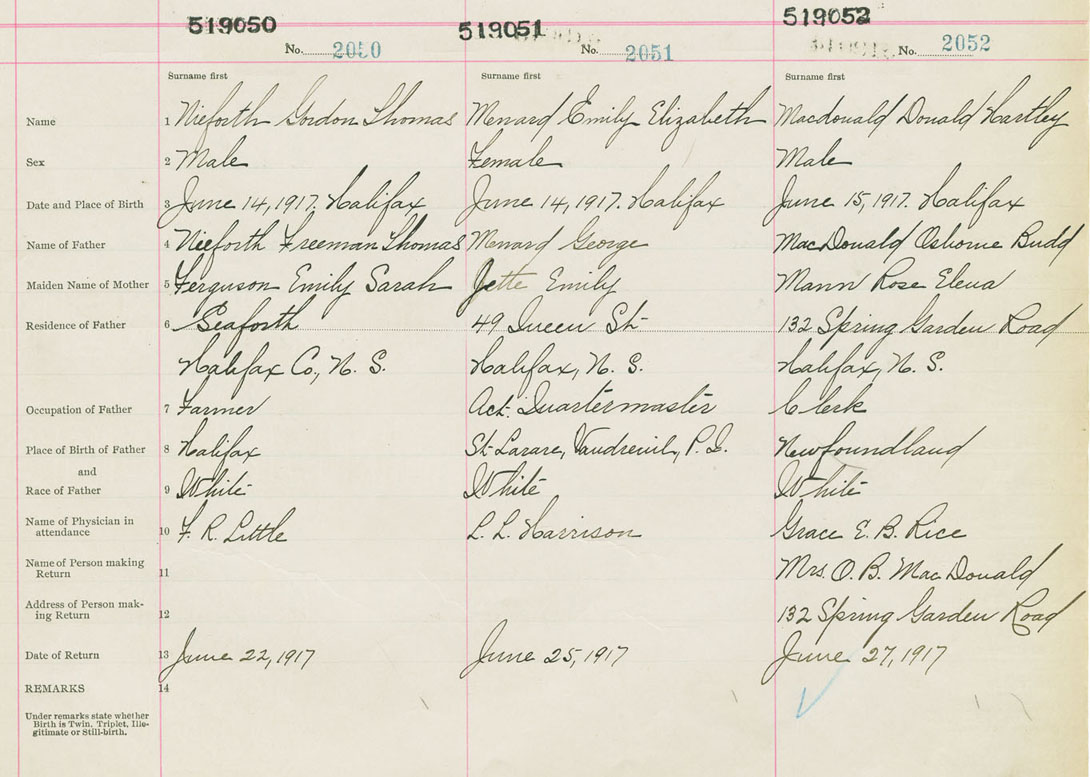 519050 519051 519052
No. 2050 No. 2051 No. 2052
Surname first Surname first Surname first
Name 1 Nieforth Gordon Thomas Menard Emily Elizabeth Macdonald Donald Hartley
Sex 2 Male Female Male
Date and Place of Birth 3 June 14, 1917. Halifax June 14, 1917. Halifax June 15, 1917. Halifax
Name of Father 4 Nieforth Freeman Thomas Menard George MacDonald Osborne Budd
Maiden Name of Mother 5 Ferguson Emily Sarah Jette Emily Mann Rose Elena
Residence of Father 6 Seaforth 49 Queen St. 132 Spring Garden Road
Halifax Co., N. S. Halifax, N. S. Halifax, N. S.
Occupation of Father 7 Farmer Act. Quartermaster Clerk
Place of Birth of Father 8 Halifax St. Lazare, Vaudreuil, P. Q. Newfoundland
and
Race of Father 9 White White White
Name of Physician in
attendance 10 F. R. Little L. L. Harrison Grace E. B. Rice
Name of Person making
Return 11 Mrs. O. B. MacDonald
Address of Person mak-
ing Return 12 132 Spring Garden Road
Date of Return 13 June 22, 1917 June 25, 1917 June 27, 1917
REMARKS 14
Under remarks state whether
Birth is Twin, Triplet, Ille-
gitimate or Still-birth.